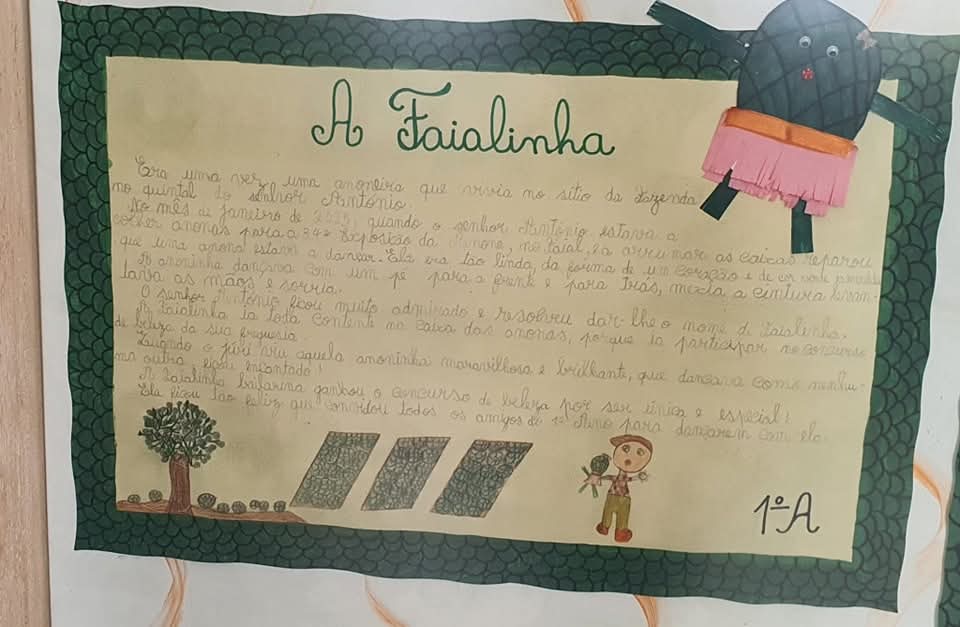 A Faialinha
Era uma vez uma anoneira que vivia no sítio da Fazenda
no quintal do senhor António.
No mês de janeiro de 2025, quando o senhor António estava a
colher anonas para a 34ª Exposição da Anona, no Faial, ia arrumar as caixas reparou
que uma anona estava a dançar. Ela era tão linda, da forma de um coração e de cor verde
A anoninha dançava com um pé para a frente e para trás, mexia a cintura levan-
tava as mãos e sorria.
O senhor António ficou muito admirado e resolveu dar-lhe o nome de Faialinha.
A Faialinha ia toda contente na caixa das anonas, porque ia participar no concurso
de beleza da sua freguesia.
Quando o júri viu aquela anoninha maravilhosa e brilhante, que dançava como nenhu-
ma outra, ficou encantado!
A Faialinha bailarina ganhou o concurso de beleza por ser única e especial!
Ela ficou tão feliz que convidou todos os amigos do 1º Ano para dançarem com ela.
1º A